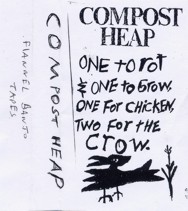 COMPOST
HEAP
ONE TO ROT
& ONE TO GROW.
ONE FOR CHICKEN,
TWO FOR THE
CROW.
COMPOST HEAP
TAPES